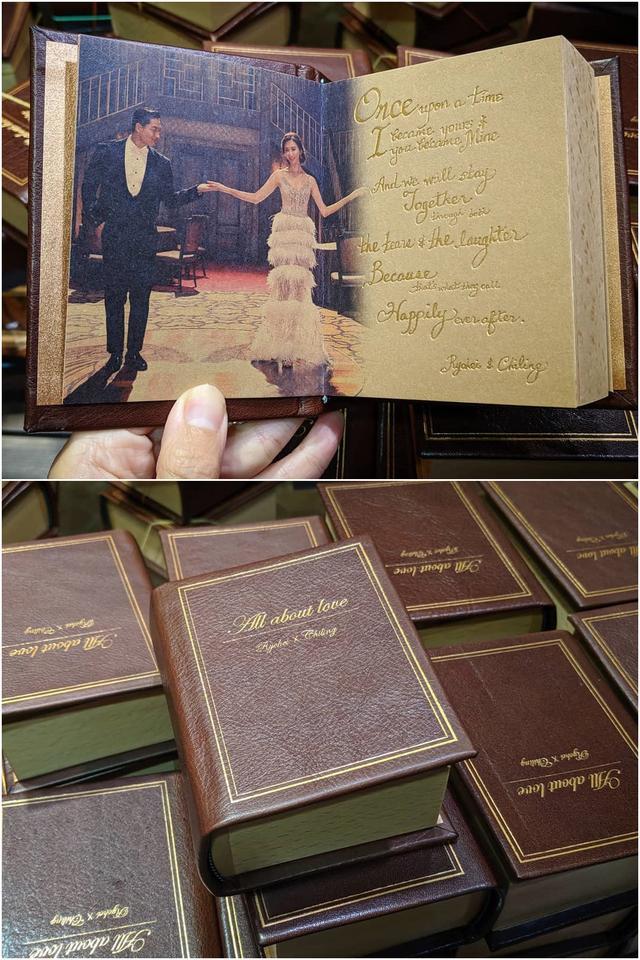 Once upon a time
I became yours &
you became Mine
And we will stay
Together
through both
the tears & the laughter
Because
that's what they call
Happily ever after.
Ryohei & Chiling
All about love
Ryohei × Chiling
All about love
Ryohei × Chiling
All about love
Ryohei × Chiling
All about love
Ryohei × Chiling
All about love
Ryohei × Chiling
All about love